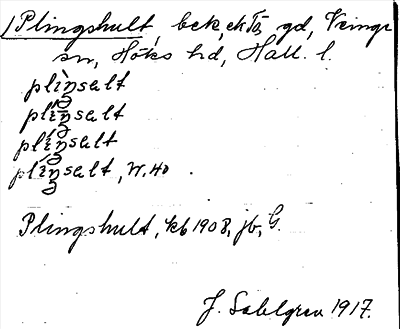 Plingshult, bek, ek Tz gd, Veinge
sn, Höks hd, Hall. l.
plìŋsalt
plíŋsalt
plíŋsalt
plíŋsalt, W. 40
Plingshult, kb 1908, jb, G.
J. Sahlgren 1917.